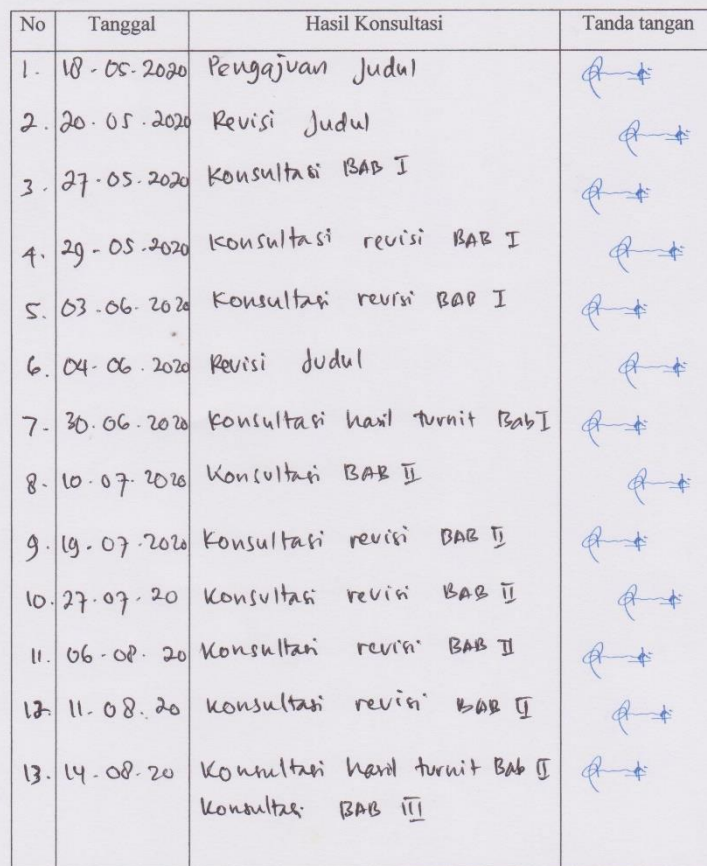 No Tanggal Hasil Konsultasi Tanda tangan
1. 18-05-2020 Pengajuan Judul
2. 20.05.2020 Revisi Judul
3. 27-05.2020 Konsultasi BAB I
4. 29-05.2020 Konsultasi revisi BAB I
5. 03.06.2020 Konsultasi revisi BAB I
6. 04-06.2020 Revisi Judul
7. 30.06.2020 Konsultasi hasil turnit Bab I
8. 10.07.2020 Konsultasi BAB II
9. 19.07.2020 Konsultasi revisi BAB II
10. 27.07.20 Konsultasi revisi BAB II
11. 06-08.20 Konsultasi revisi BAB II
12. 11-08.20 Konsultasi revisi BAB II
13. 14-08-20 Konsultasi hasil turnit Bab II
Konsultasi BAB III